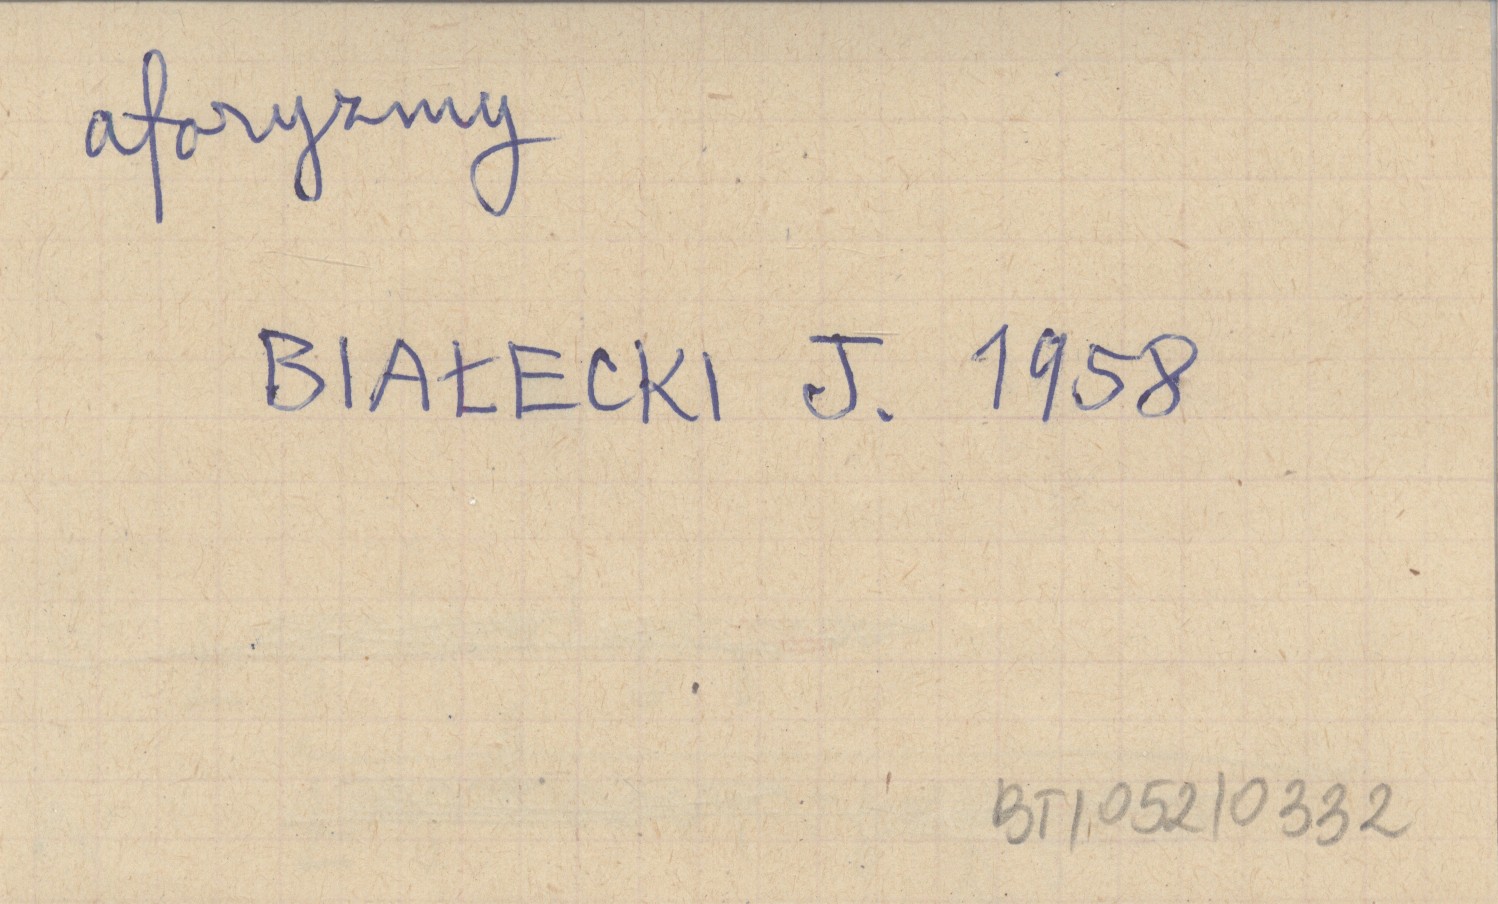 aforyzmy
BIAŁECKI J. 1958
BT/052/0332